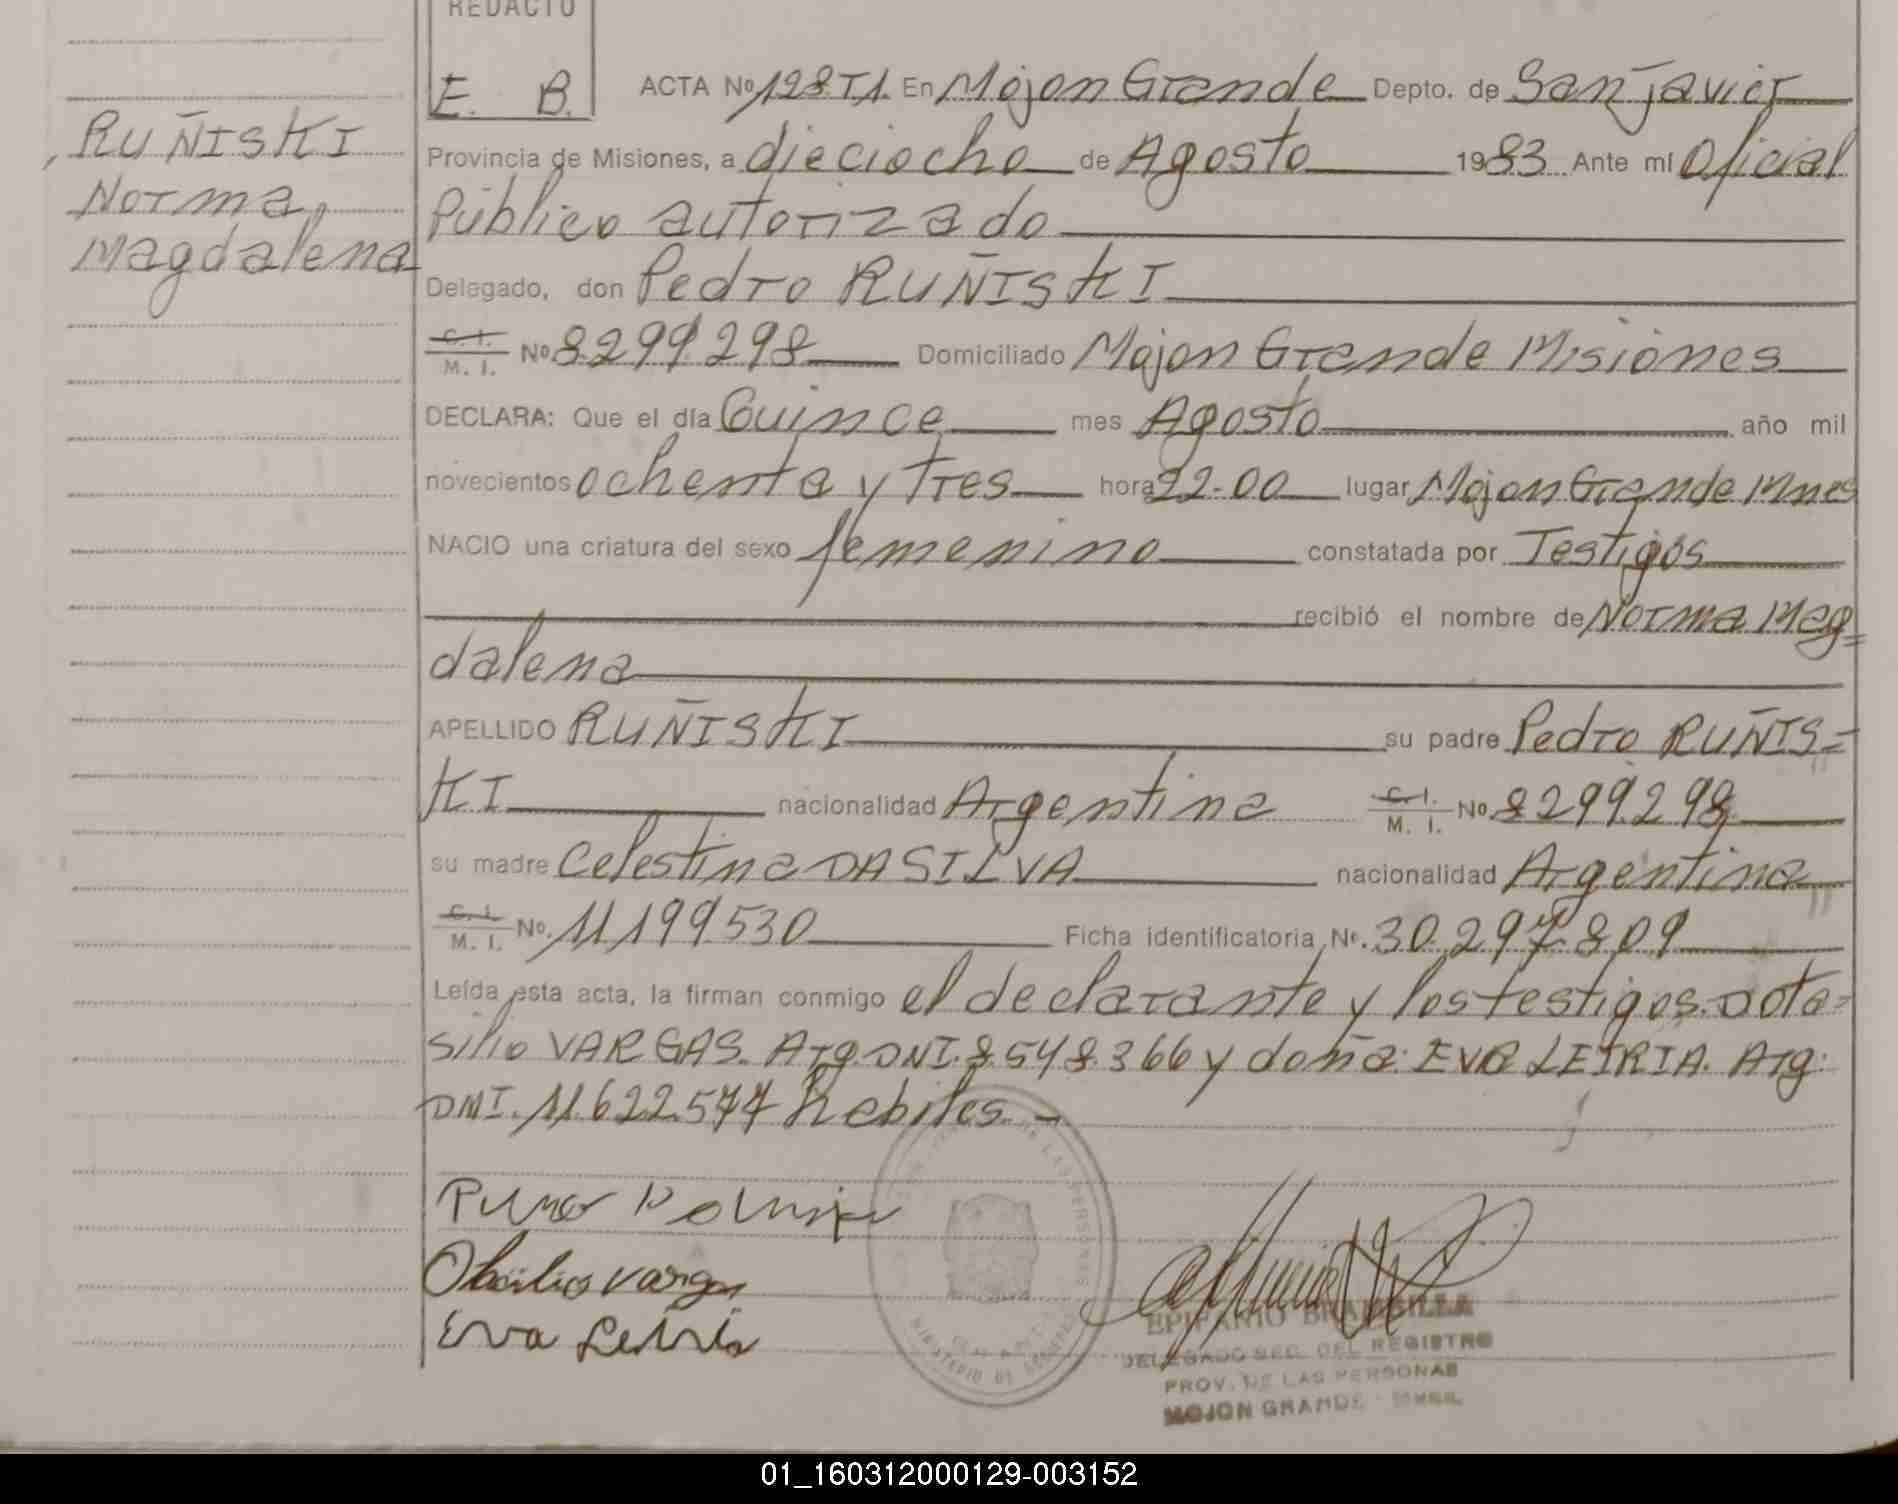 REDACTO
E. B.
RUÑISKI
Norma
Magdalena
ACTA Nº 128 T1. En Mojon Grande Depto. de San Javier
Provincia de Misiones, a dieciocho de Agosto 1983 Ante mí Oficial
Público autorizado
Delegado, don Pedro RUÑISKI
C. I. / M. I. Nº 8299298 Domiciliado Mojon Grande Misiones
DECLARA: Que el día Quince mes Agosto año mil
novecientos ochenta y tres hora 22-00 lugar Mojon Grande Mnes
NACIO una criatura del sexo femenino constatada por Testigos
recibió el nombre de Norma Mag=
dalena
APELLIDO RUÑISKI su padre Pedro RUÑIS=
KI nacionalidad Argentina C. I. / M. I. Nº 8299.298
su madre Celestina DA SILVA nacionalidad Argentina
C. I. / M. I. Nº. 11199530 Ficha identificatoria Nº. 30.297.809
Leída esta acta, la firman conmigo el declarante y los testigos. Dota=
silio VARGAS. Arg. DNI. 8.548.366 y doña: EVA LEIRIA. Arg:
DNI. 11.622.577 habiles.-
Obdilio Vargas
Eva Leiria
EPIFANIO BRAMBILLA
DELEGADO SEC. DEL REGISTRO
PROV. DE LAS PERSONAS
MOJON GRANDE - MNES.
01_160312000129-003152